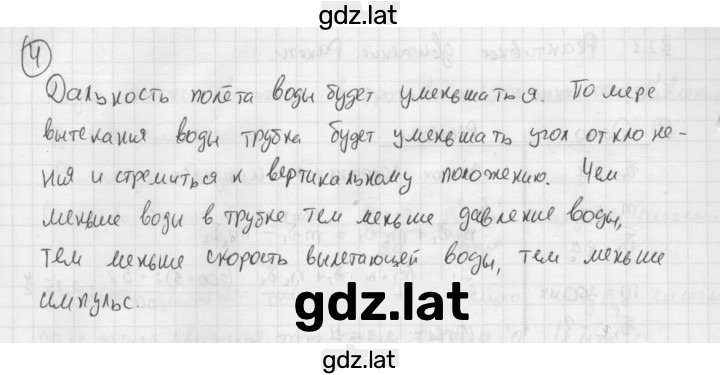 gdz.lat
4
Дальность полёта воды будет уменьшаться. По мере
вытекания воды трубка будет уменьшать угол отклоне-
ния и стремиться к вертикальному положению. Чем
меньше воды в трубке тем меньше давление воды,
тем меньше скорость вылетающей воды, тем меньше
импульс.
gdz.lat
gdz.lat